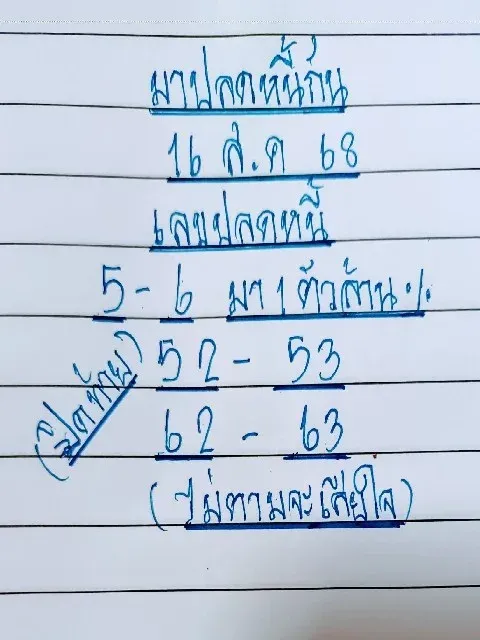 มาปลดหนี้กัน
16 ส.ค 68
เลขปลดหนี้
5 - 6 มา 1 ตัวล้าน %
52 - 53
(ปิดท้าย)
62 - 63
(ไม่ตามจะเสียใจ)